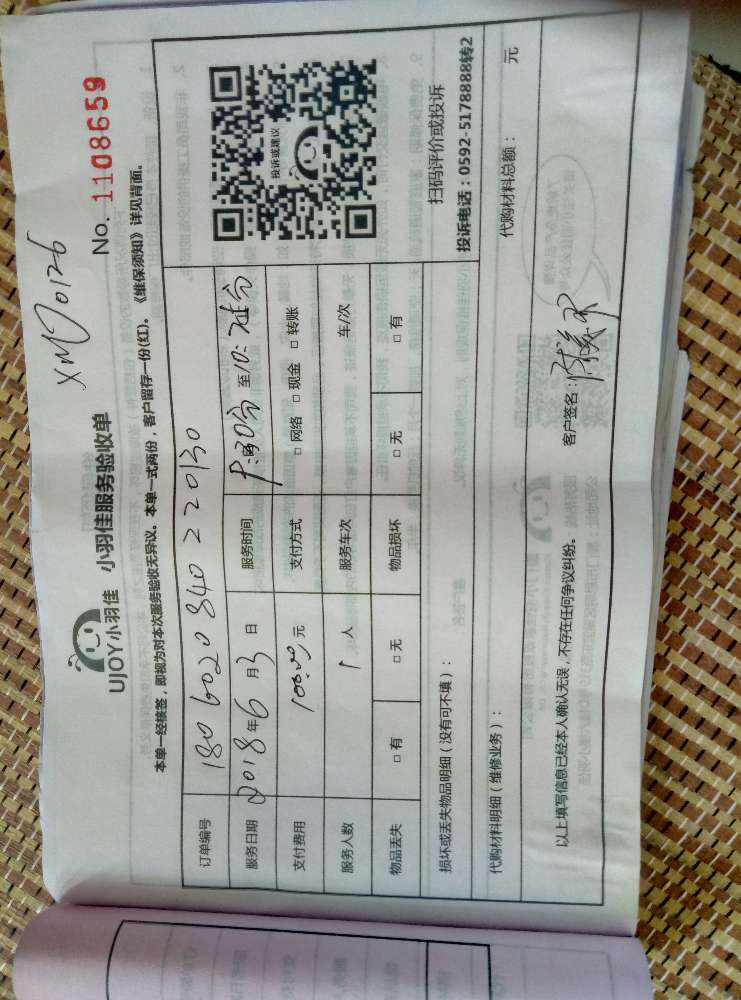 XM70126
UJOY小羽佳 小羽佳服务验收单
No. 1108659
本单一经核签，即视为对本次服务验收无异议。本单一式两份 客户留存一份(红)。《维保须知》详见背面。
订单编号 180602084022 0130
服务日期 2018年6月3日 服务时间 至10:
支付费用 100.00元 支付方式 □ 网络 □ 现金 □ 转账
服务人数 1人 服务车次 车/次
物品丢失 □ 有 □ 无 物品损坏 □ 无 □ 有
投诉或建议
扫码评价或投诉
投诉电话：0592-5178888转2
损坏或丢失物品明细（没有可不填）：
代购材料明细（维修业务）： 代购材料总额： 元
以上填写信息已经本人确认无误，不存在任何争议纠纷。 客户签名：